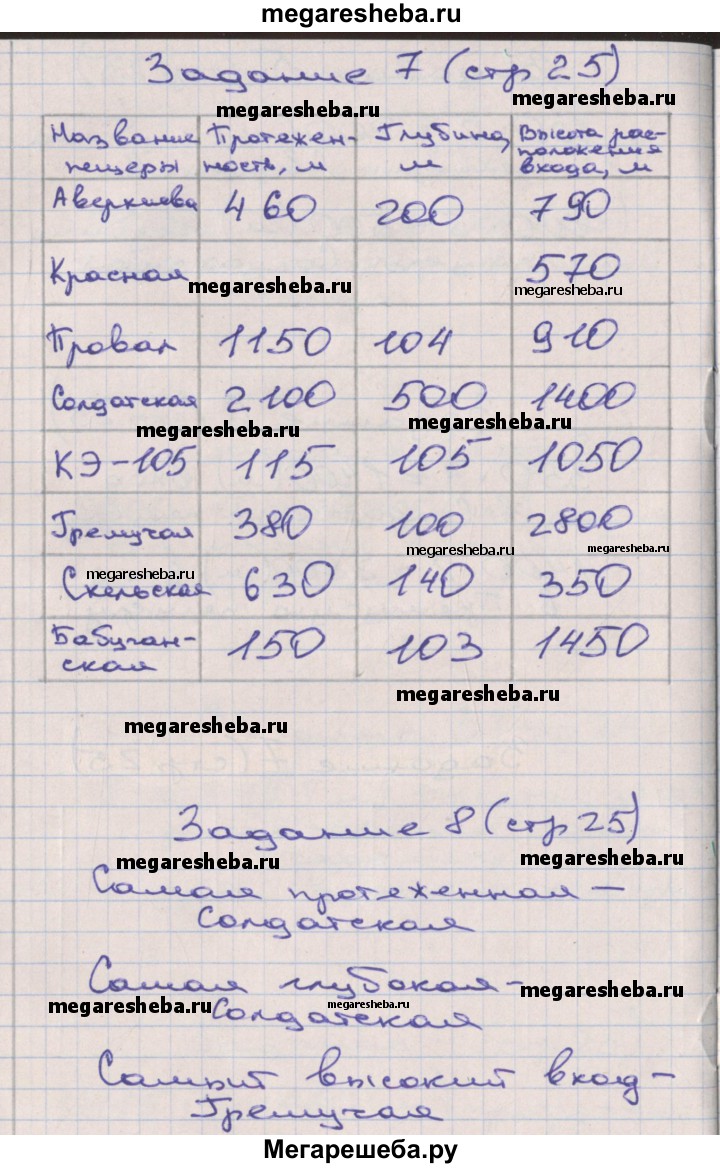 megaresheba.ru
Задание 7 (стр 25)
megaresheba.ru megaresheba.ru
Название пещеры Протяжен-ность, м Глубина, м Высота рас-положения входа, м
Аверкиева 460 200 790
Красная 570
megaresheba.ru megaresheba.ru
Провал 1150 104 910
Солдатская 2100 500 1400
megaresheba.ru megaresheba.ru
КЭ-105 115 105 1050
Гремучая 380 100 2800
megaresheba.ru megaresheba.ru
megaresheba.ru
Скельская 630 140 350
Бабуган-ская 150 103 1450
megaresheba.ru
megaresheba.ru
Задание 8 (стр 25)
megaresheba.ru megaresheba.ru
Самая протяженная –
Солдатская
Самая глубокая -
megaresheba.ru megaresheba.ru megaresheba.ru
Солдатская
Самый высокий вход -
Гремучая
Мегарешеба.ру